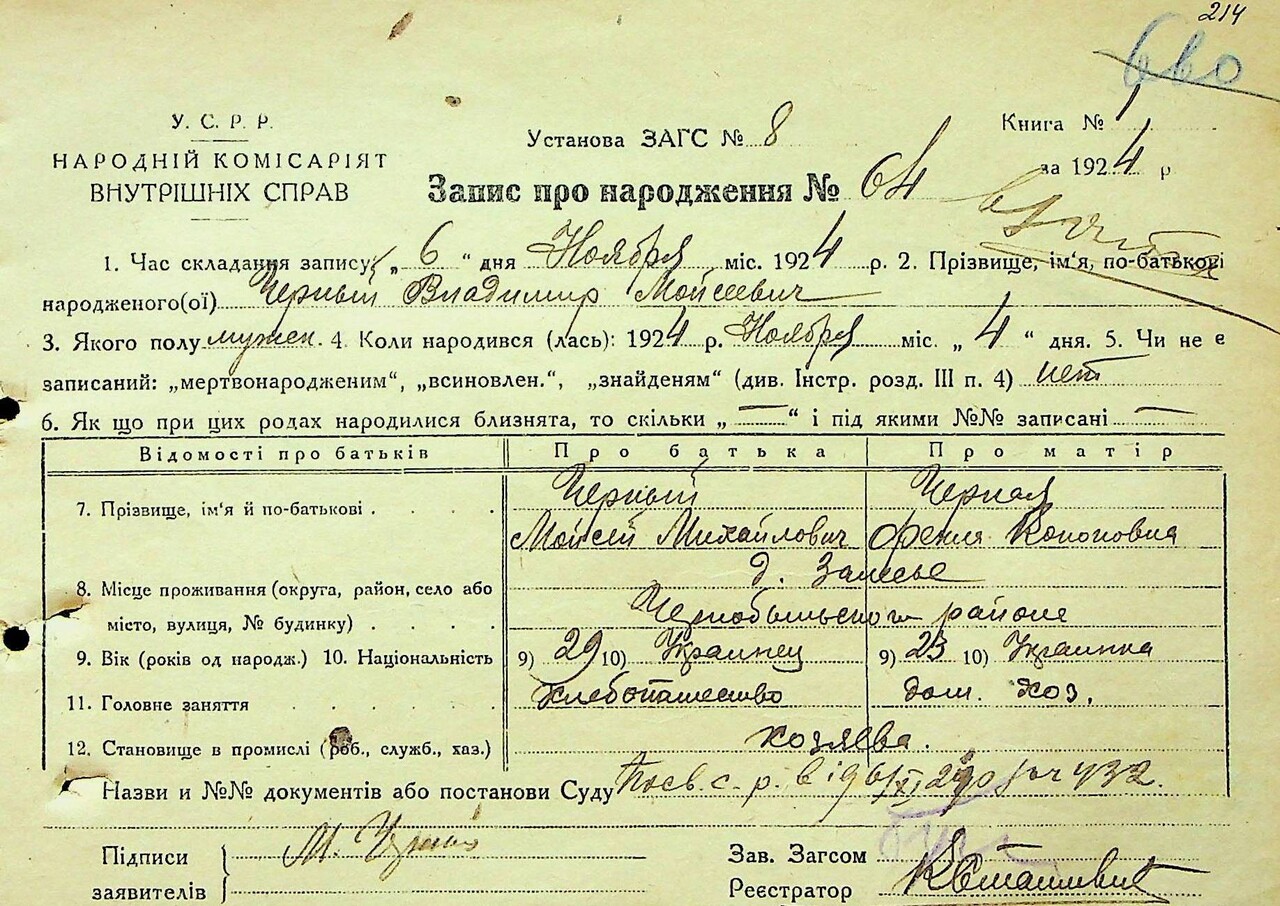 214
660
У. С. Р. Р.
НАРОДНІЙ КОМІСАРІЯТ
ВНУТРІШНІХ СПРАВ
Установа ЗАГС № 8
Книга № 1
за 1924 р
Запис про народження № 64
1. Час складання запису: „ 6 “ дня Ноября міс. 1924 р. 2. Прізвище, ім'я, по-батькові
народженого(ої) Черный Владимир Мойсеевич
3. Якого полу мужск. 4. Коли народився (лась): 1924 р. Ноября міс. „ 4 “ дня. 5. Чи не є
записаний: „мертвонародженим“, „всиновлен.“, „знайденям“ (див. Інстр. розд. III п. 4) нет
6. Як що при цих родах народилися близнята, то скільки „ — “ і під якими №№ записані —
Відомості про батьків Про батька Про матір
7. Прізвище, ім'я й по-батькові . . . . Черный Черная
Мойсей Михайлович Фекля Кононовна
8. Місце проживання (округа, район, село або д. Залесье
місто, вулиця, № будинку) . . . . Чернобыльского района
9. Вік (років од народж.) 10. Національність 9) 29 10) Украинец 9) 23 10) Украинка
11. Головне заняття . . . . . Хлебопашество дом. хоз.
12. Становище в промислі (роб., служб., хаз.) хозяева.
Назви и №№ документів або постанови Суду 432.
Підписи
заявителів
М. Черный
Зав. Загсом
Реєстратор